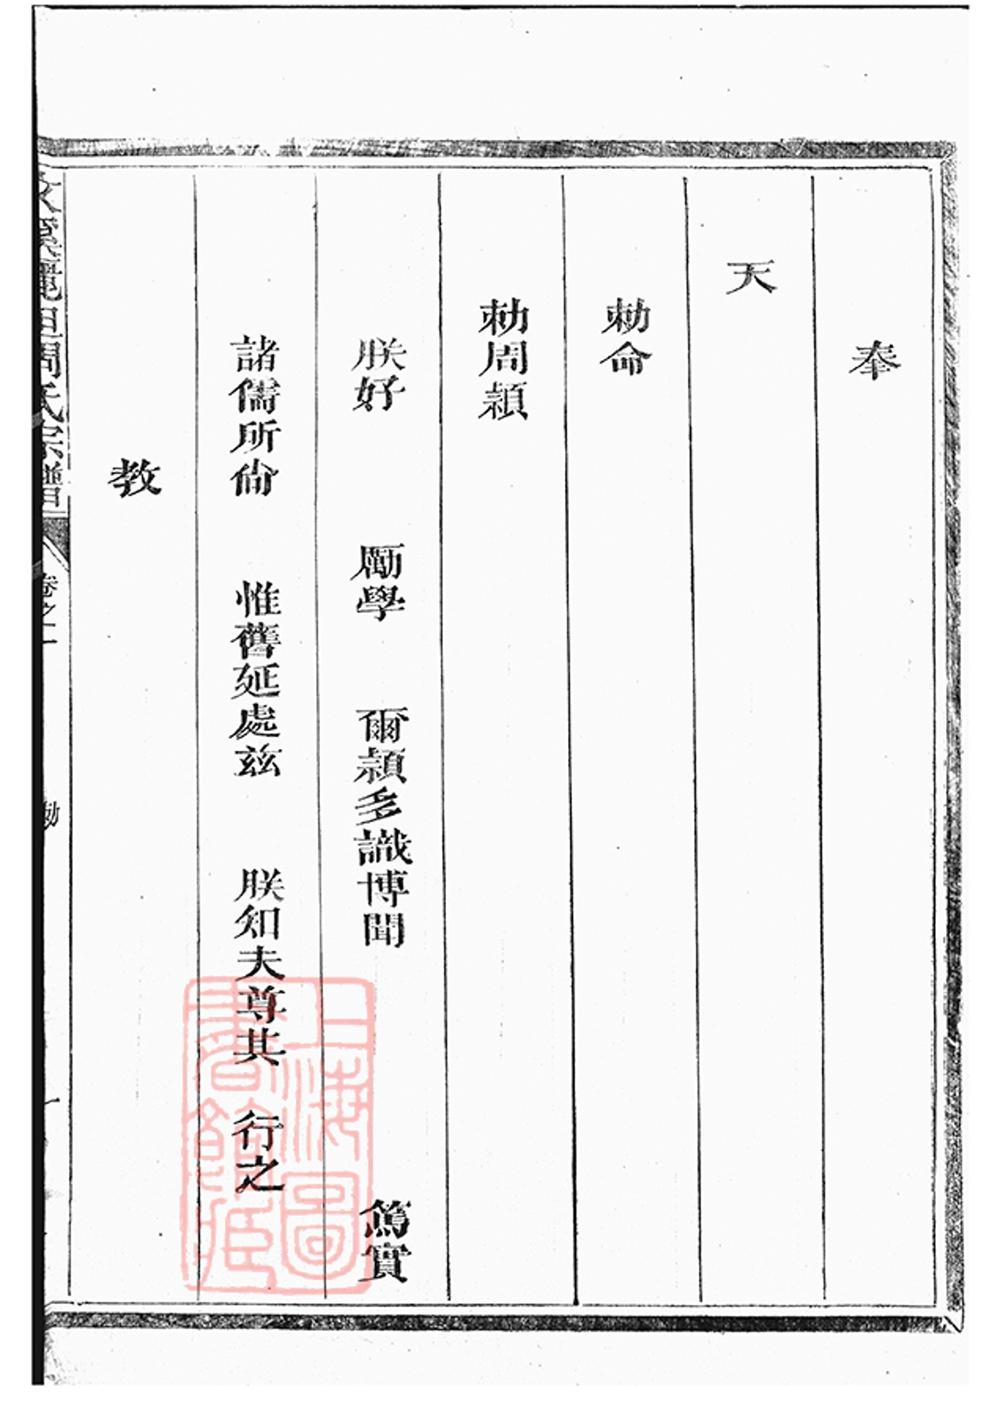 奉
天
勅命
勅周頴
朕好 勵學 爾頴多識博聞 篤實
諸儒所尙 惟舊延處玆 朕知夫尊其 行之
教
周氏宗譜
卷之一
勅
上海圖
書館藏